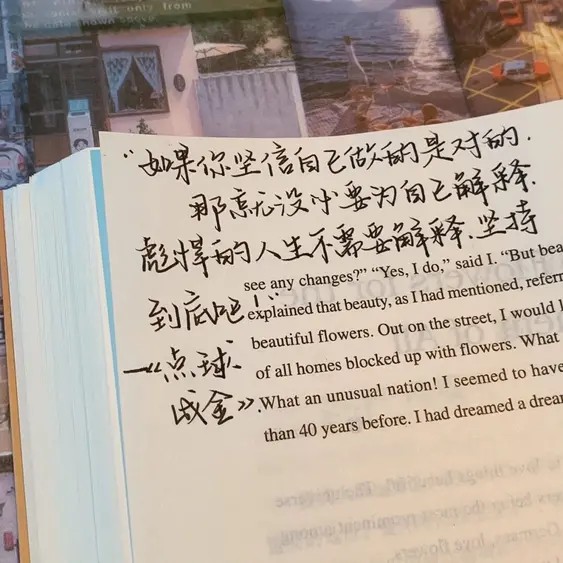 "如果你坚信自己做的是对的.
那就没必要为自己解释.
彪悍的人生不需要解释.坚持
到底吧!"
—《点球
成金》.
see any changes?" "Yes, I do," said I. "But bea
explained that beauty, as I had mentioned, referr
beautiful flowers. Out on the street, I would l
of all homes blocked up with flowers. What
What an unusual nation! I seemed to have
than 40 years before. I had dreamed a drea